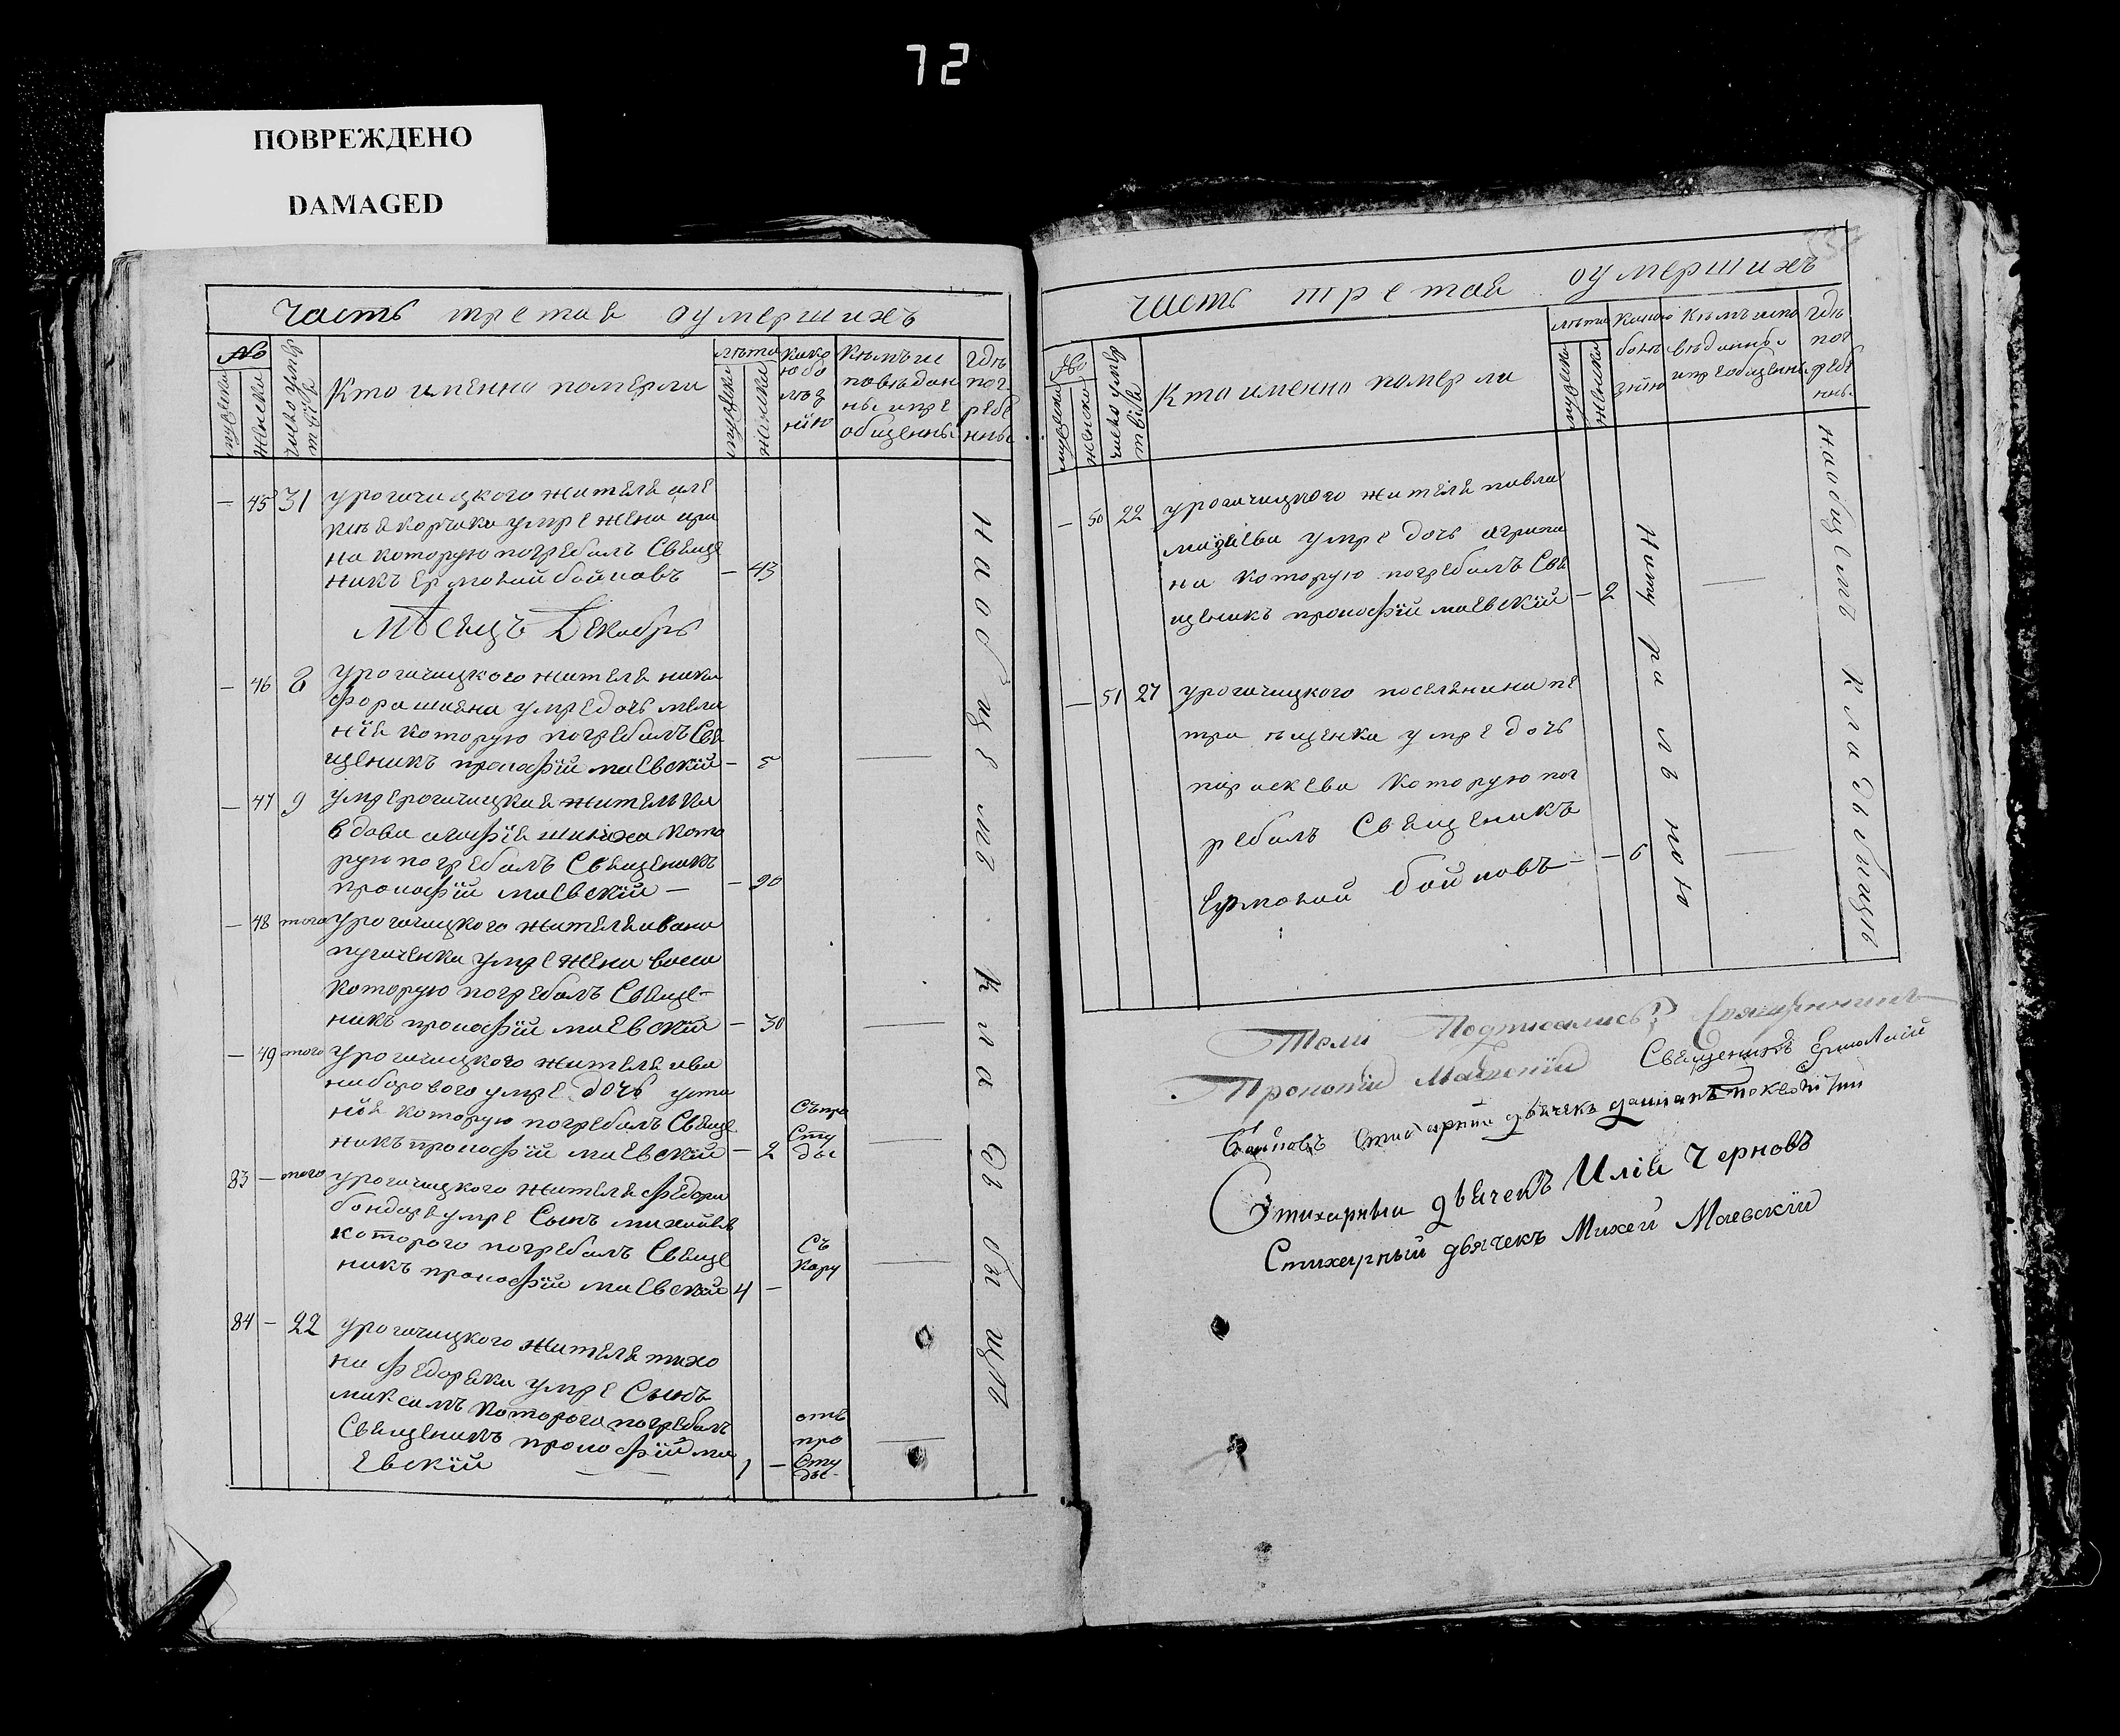 72
ПОВРЕЖДЕНО
DAMAGED
Часть третая оумершихъ
№
мужеска
женска
число умертвія
Кто именно померли
лѣта
мужеска
женска
какою болѣзнію
Кѣмъ исповѣданны и преобщенны
гдѣ погребенны
— 45 31 урогачицкого жителя але
ксѣя корчака умре жена ири
на которую погребалъ Свяще
никъ Ермолай бойновъ — 43
Мѣсецъ Декабрь
— 46 8 урогачицкого жителя ники
фора шияна умре дочь мела
нія которую погребалъ Свя
щеникъ прокофій маевскій — 5
— 47 9 умре рогачицкая жителька
вдова агафія которую
погребалъ Священикъ
прокофій маевскій — — 90
— 48 того урогачицкого жителя ивана
пугаченка умре жена васса
которую погребалъ Свяще-
никъ прокофій маевскій — 30
— 49 того урогачицкого жителя ива
на борового умре дочь усти
нія которую погребалъ Свяще
никъ прокофій маевскій — 2 Съ про Сту ды
83 — того урогачицкого жителя федора
бондаря умре Сынъ михаилъ
которого погребалъ Свяще
никъ прокофій маевскій 4 — Съ Кору
84 — 22 урогачицкого жителя тихо
на федоряки умре Сынъ
максимъ которого погребалъ
Священикъ прокофій ма
евскій 1 — отъ про Сту ды-
на обще мъ кла дби щѣ
часть третая оумершихъ
№
мужеска
женска
число умертвія
Кто именно померли
лѣта
мужеска
женска
Какою болѣзнію
Кѣмъ исповѣданны и преобщенны
гдѣ погребенны
— 50 22 урогачицкого жителя павла
умре дочь агрипи
на которую погребалъ Свя
щеникъ прокофій маевскій — 2
— 51 27 урогачицкого поселянина пе
тра ященка умре дочь
параскева которую пог
ребалъ Священикъ
Ермолай бойновъ — — 6
Натуралною
на общемъ кладбищѣ
Подписались: Священникъ
Прокопій Маевскій Священикъ Ермолай
Бойновъ Стихарный дьячекъ
Стихарный дьячекъ Илія Черновъ
Стихарный дьячекъ Михей Маевскій